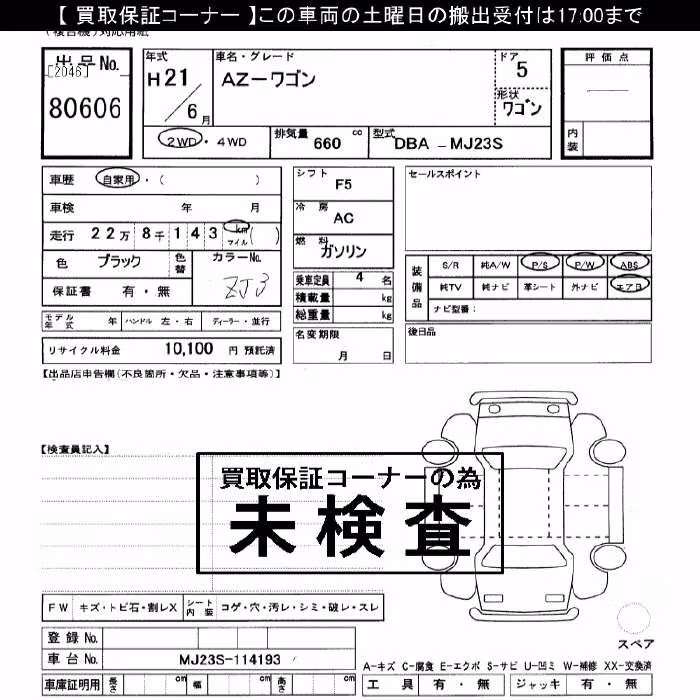 【 買取保証コーナー 】この車両の土曜日の搬出受付は17:00まで
出品No.
[2046]
80606
年式
H21/6月
車名・グレード
AZーワゴン
ドア
5
形状
ワゴン
評価点
内装
2WD・4WD
排気量 660 cc
型式 DBA －MJ23S
車歴 自家用・( )
車検 年 月
走行 22万 8千143 km マイル ( )
色 ブラック 色替 カラーNo. ZJ3
保証書 有・無
シフト
F5
冷房
AC
燃料
ガソリン
乗車定員 4 名
積載量 kg
総重量 kg
セールスポイント
装備品
S/R 純A/W P/S P/W ABS
純TV 純ナビ 革シート 外ナビ エアB
ナビ型番：
モデル年式 年 ハンドル 左・右 ディーラー・並行
リサイクル料金 10,100 円 預託済
名変期限
月 日
後日品
【出品店申告欄(不良箇所・欠品・注意事項等)】
【検査員記入】
買取保証コーナーの為
未検査
FW キズ・トビ石・割レX シート内装 コゲ・穴・汚レ・シミ・破レ・スレ
登録 No.
車台 No. MJ23S-114193
車庫証明用 長さ cm 幅 cm 高さ cm
スペア
A-キズ C-腐食 E-エクボ S-サビ U-凹ミ W-補修 XX-交換済
工具 有・無 ジャッキ 有・無